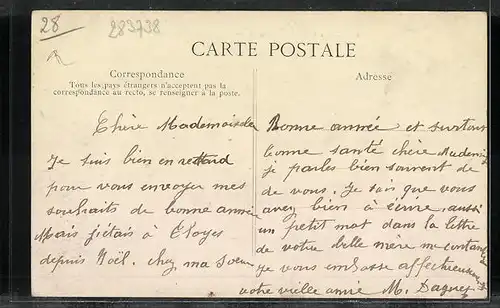 28
283738
CARTE POSTALE
Correspondance
Tous les pays étrangers n'acceptent pas la
correspondance au recto, se renseigner à la poste.
Adresse
Chère Mademoiselle
Je suis bien en retard
pour vous envoyer mes
souhaits de bonne année
Mais j'étais à Eloyes
depuis Noël. chez ma Soeur
Bonne année et surtout
bonne santé chère
je parles bien souvent de
de vous. Je sais que vous
avez bien à écrire, aussi
un petit mot dans la lettre
de votre belle mère me
je vous embrasse affectueusement
votre vielle amie M.